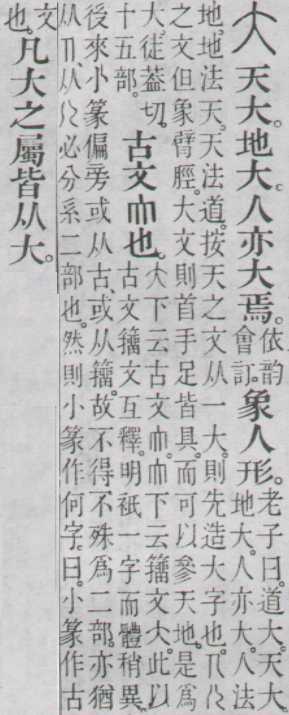 大 天大。地大。人亦大焉。
依韵
會訂。
象人形。
老子曰。道大。天大。
地大。人亦大。人法
地。地法天。天法道。按天之文从一大。則先造大字也。人儿
之文但象臂脛。大文則首手足皆具。而可以參天地。是爲
大。徒蓋切。
十五部。
古文亣也。
大下云古文亣。亣下云籒文大。此以
古文籒文互釋。明祇一字而體稍異。
後來小篆偏旁或从古、或从籒。故不得不殊爲二部。亦猶
从人、从儿必分系二部也。然則小篆作何字。曰。小篆作古
文
也。
凡大之屬皆从大。